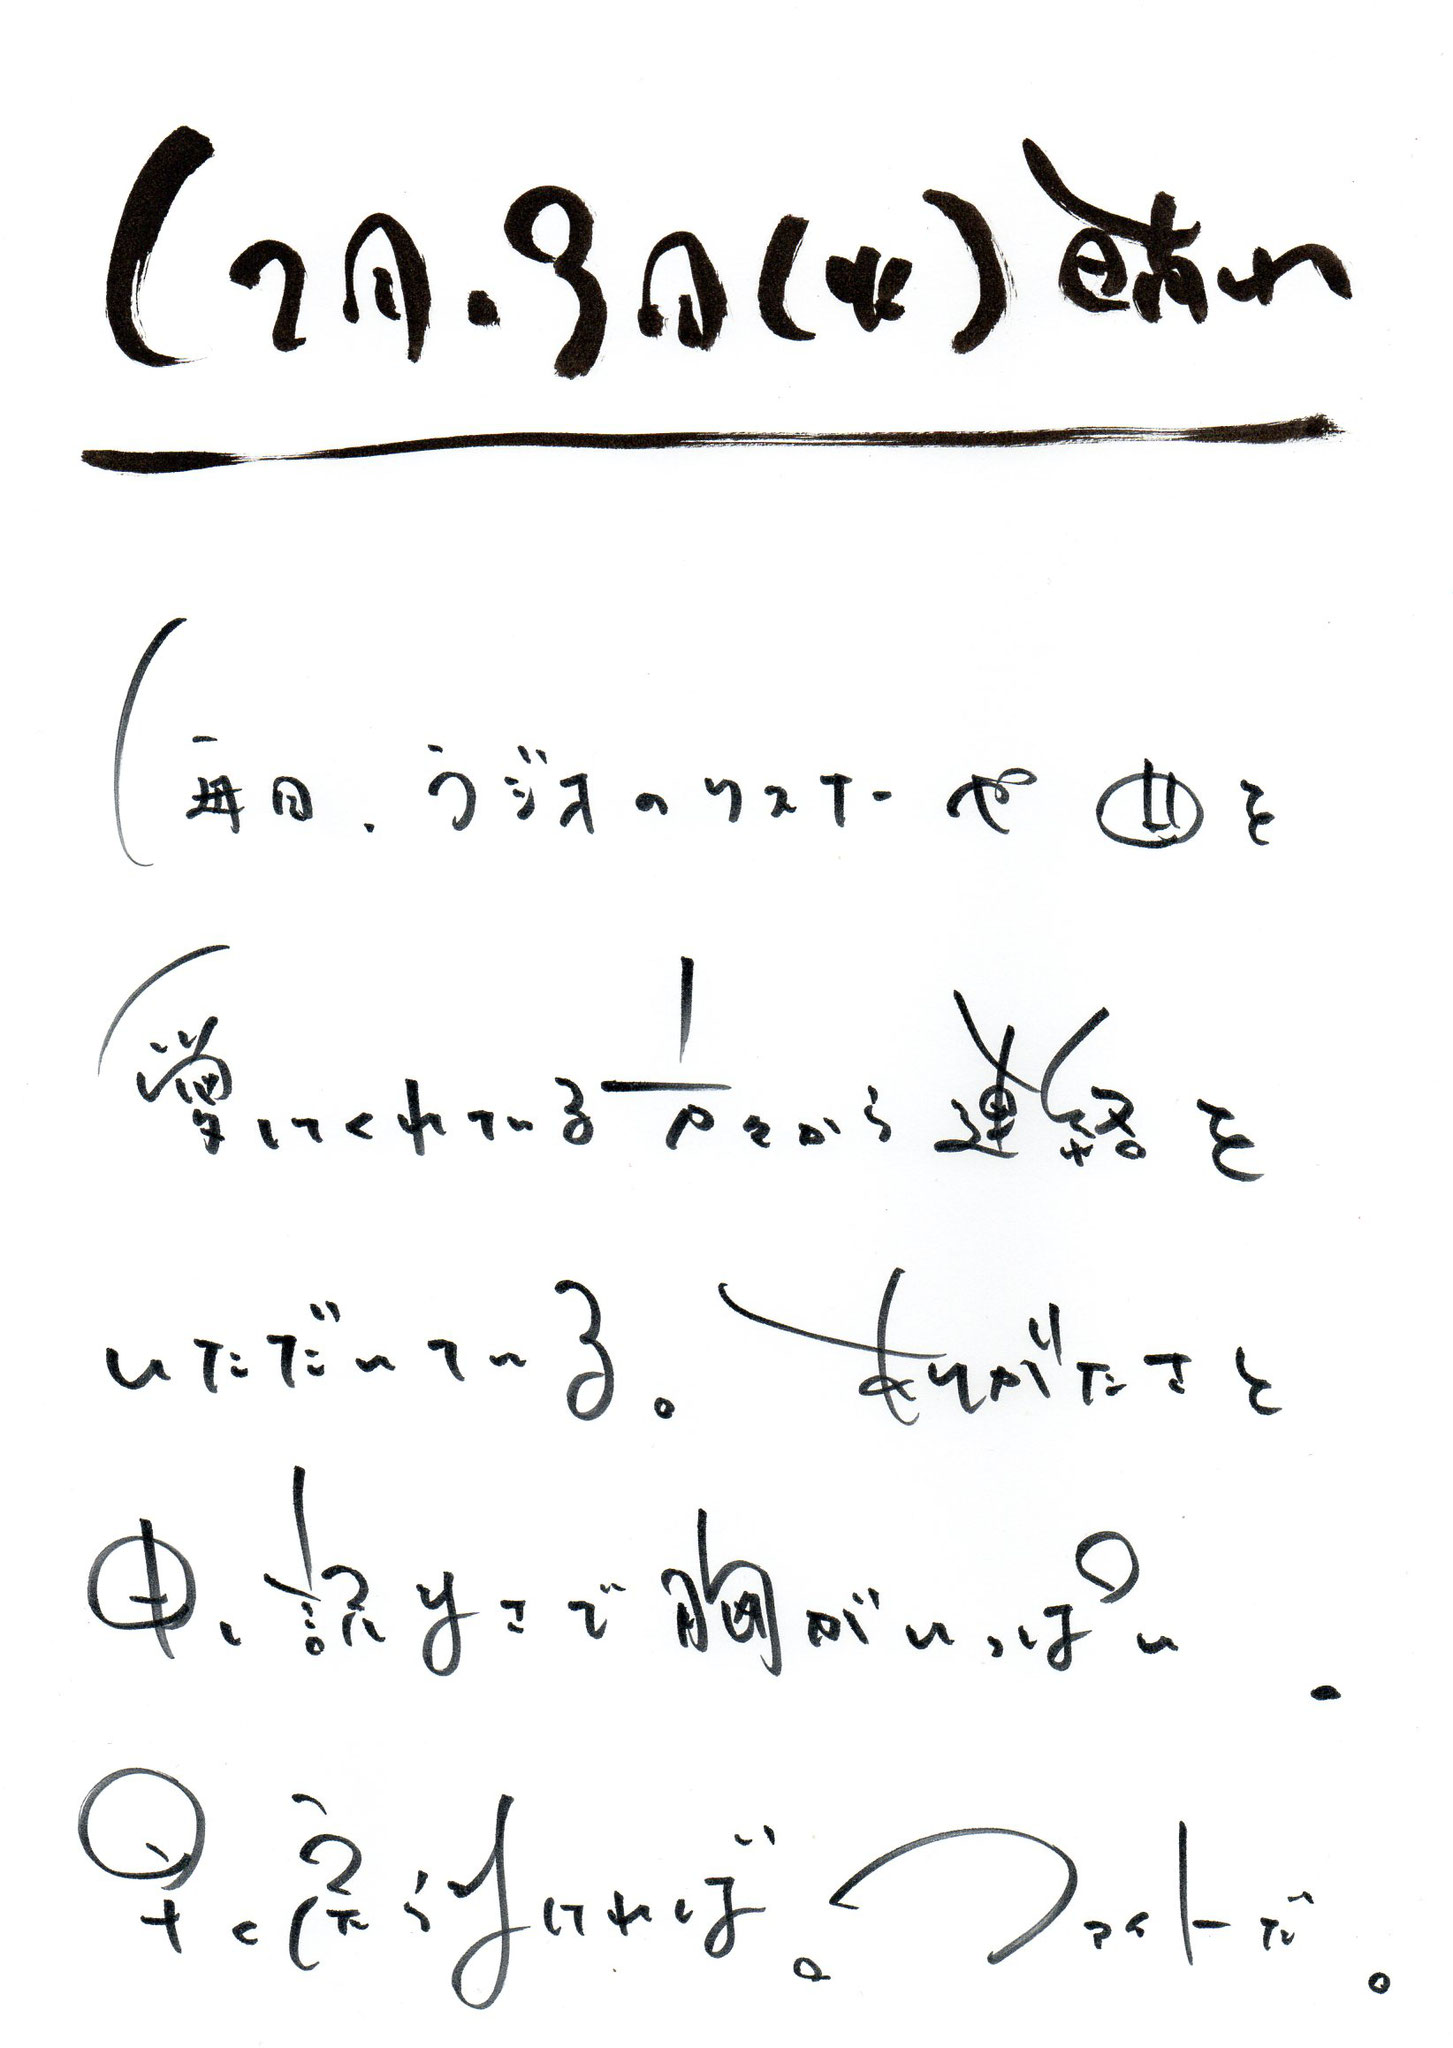 (7月.9日(水)晴れ
毎日、ラジオのリスナーや を
愛してくれている方々から連絡を
いただいている。ありがたさと
申し訳なさで胸がいっぱい.
早く戻らなければ。ファイトだ。